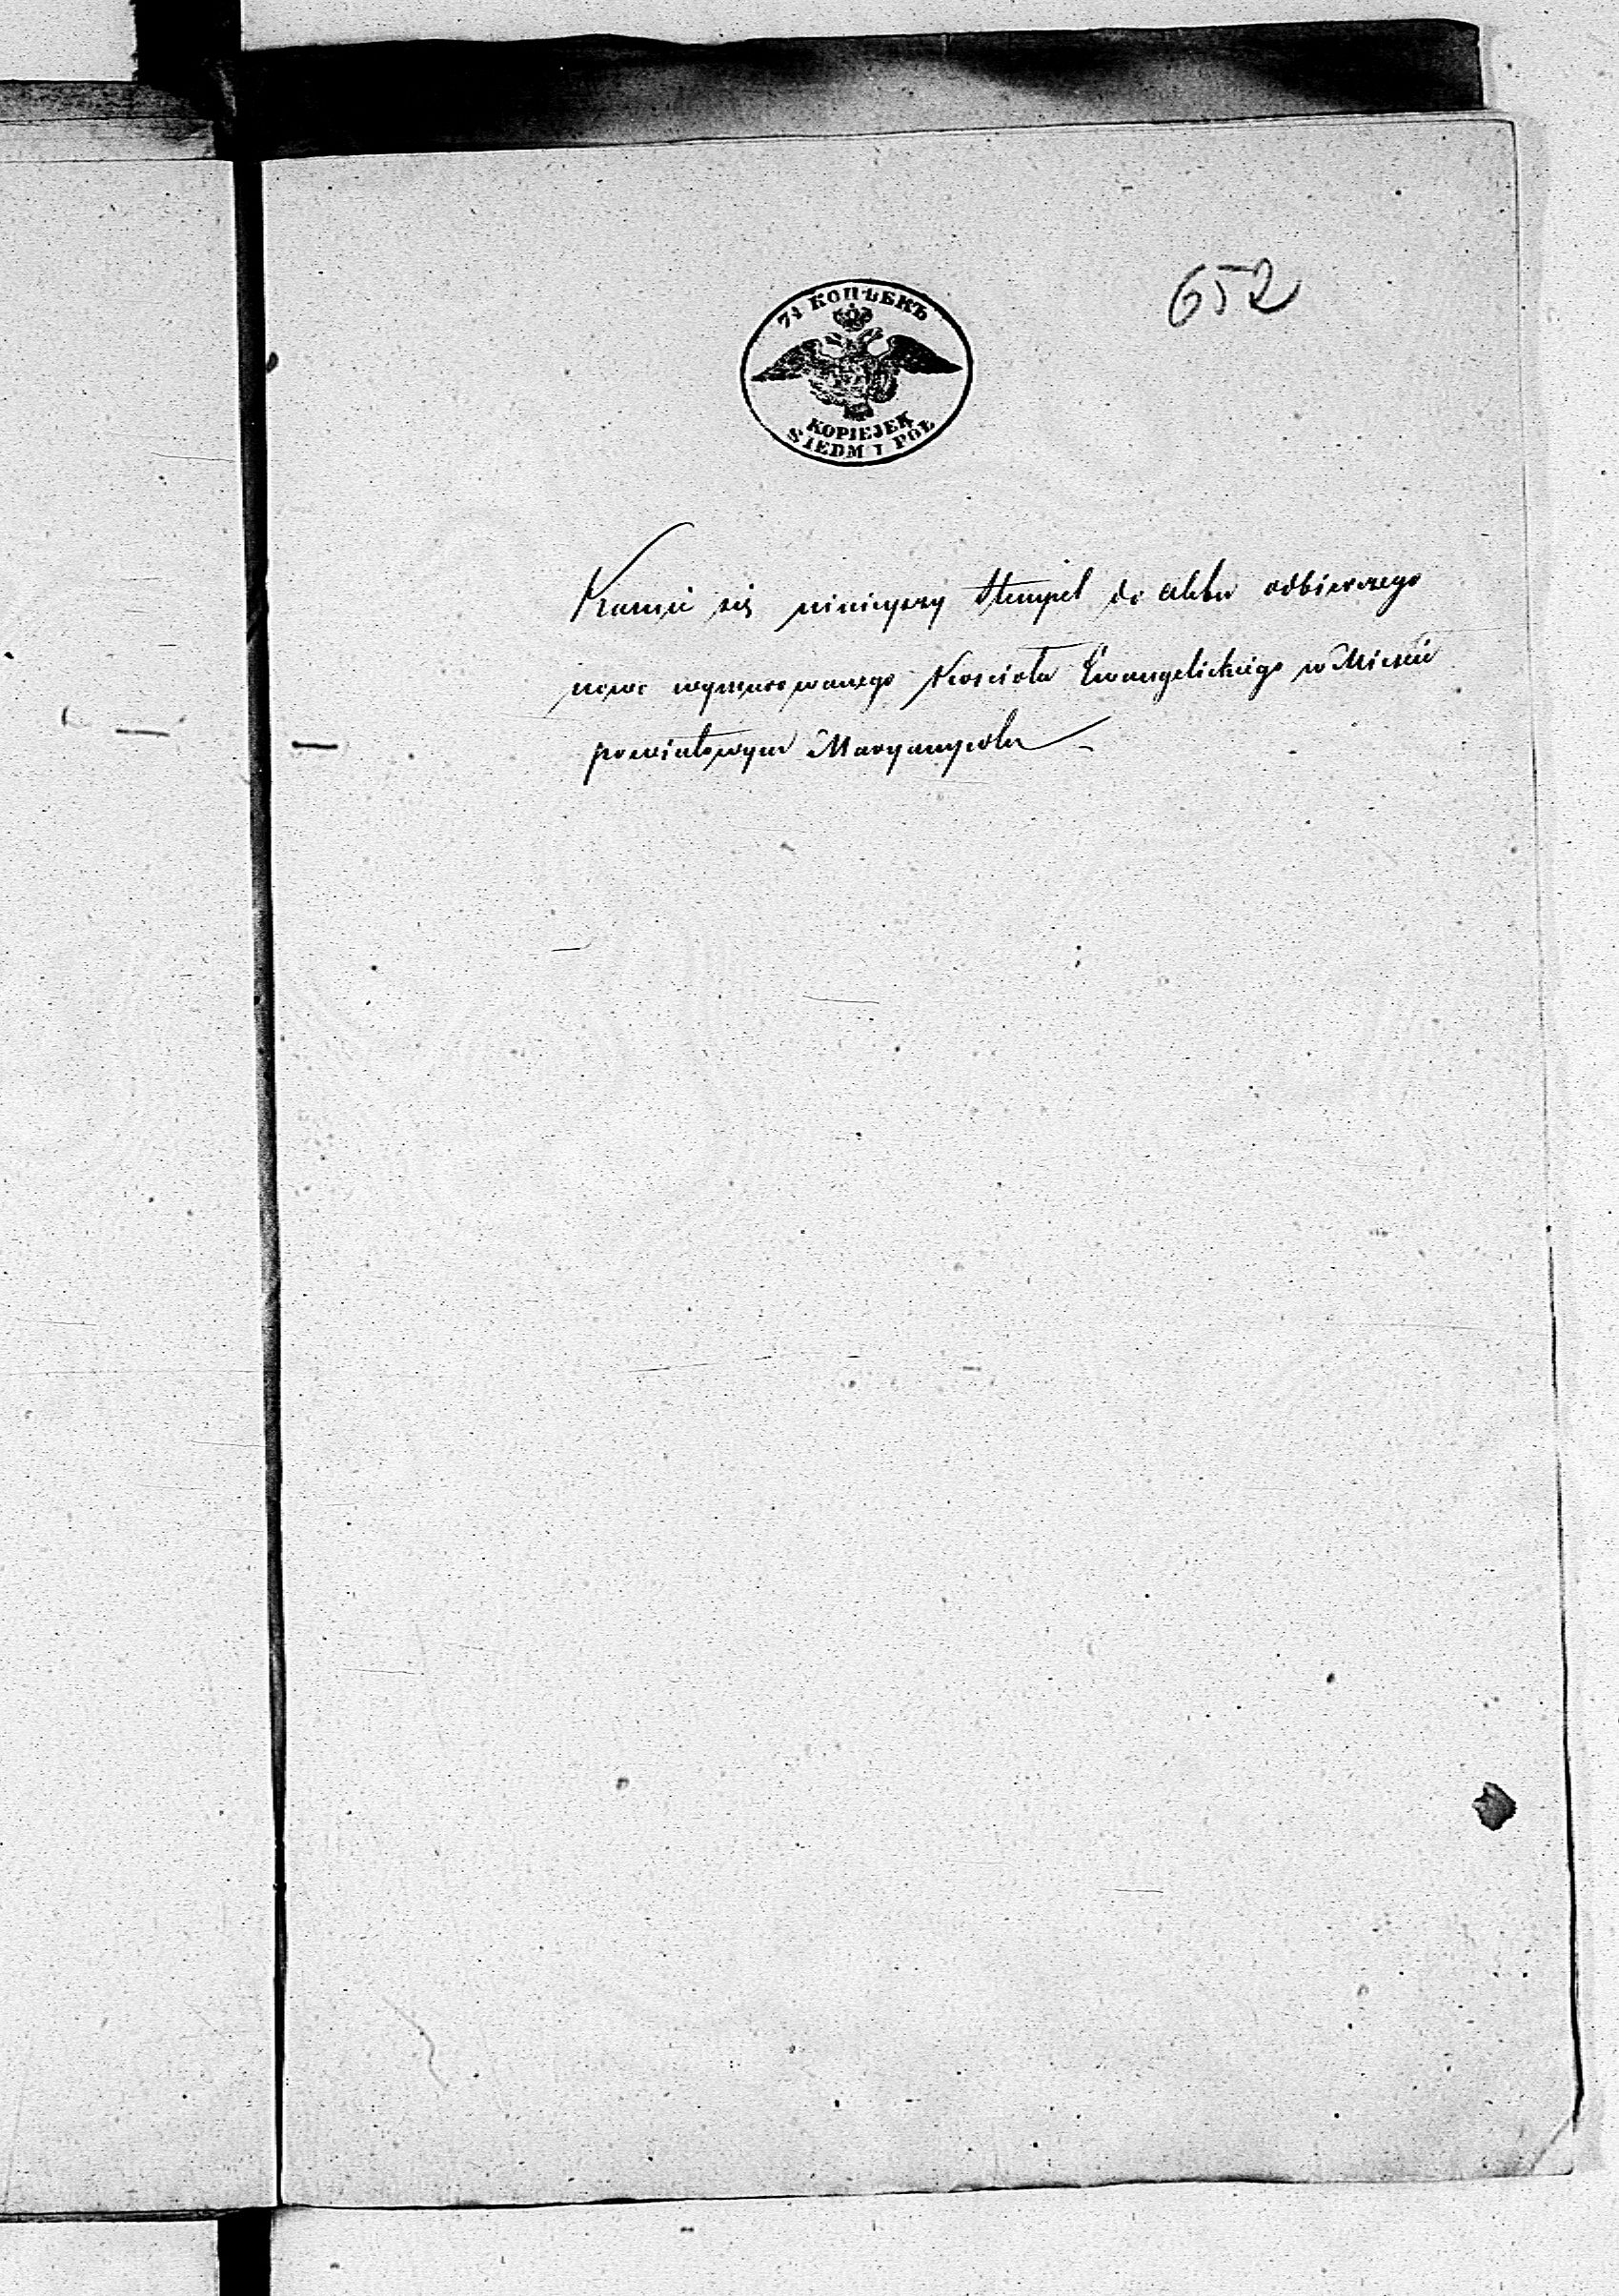 652
7½ КОПѢЕКЪ
KOPIEJEK
SIEDM I PÓŁ
się niniejszy Stempel do aktu odbiorczego
nowo wymurowanego Kościoła Ewangelickiego w Mieście
powiatowym Maryampolu